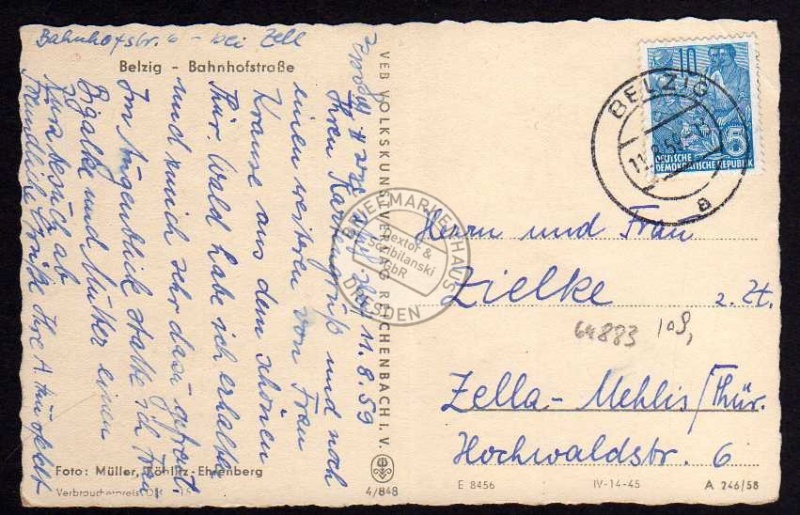 Bahnhofstr. 6 - bei Zell
Belzig - Bahnhofstraße
11.8.59
Ihren Kartengruß und noch
einen weiteren von Frau
Krause aus dem schönen
Thür. Wald habe ich erhalten
und mich sehr dazu gefreut.
Im Augenblick statte ich Frau
Bigalke und Mutter einen
Kurzbesuch ab
Freundliche Grüße Ihre A.
Foto: Müller, Böhlitz-Ehrenberg
Verbraucherpreis DM
4/848
VEB VOLKSKUNSTVERLAG REICHENBACH I. V.
BRIEFMARKENHAUS
Nextor &
Scibilanski
GbR
DRESDEN
BELZIG
11.8.59
a
10
5
DEUTSCHE
DEMOKRATISCHE REPUBLIK
Herrn und Frau
Zielke z. Zt.
64883
Zella-Mehlis/Thür.
Hochwaldstr. 6
E 8456
IV-14-45
A 246/58